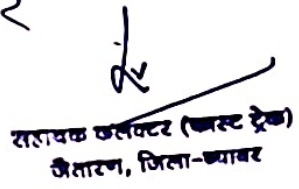 सहायक कलक्टर (फास्ट ट्रेक)
जैतारण, जिला-ब्यावर